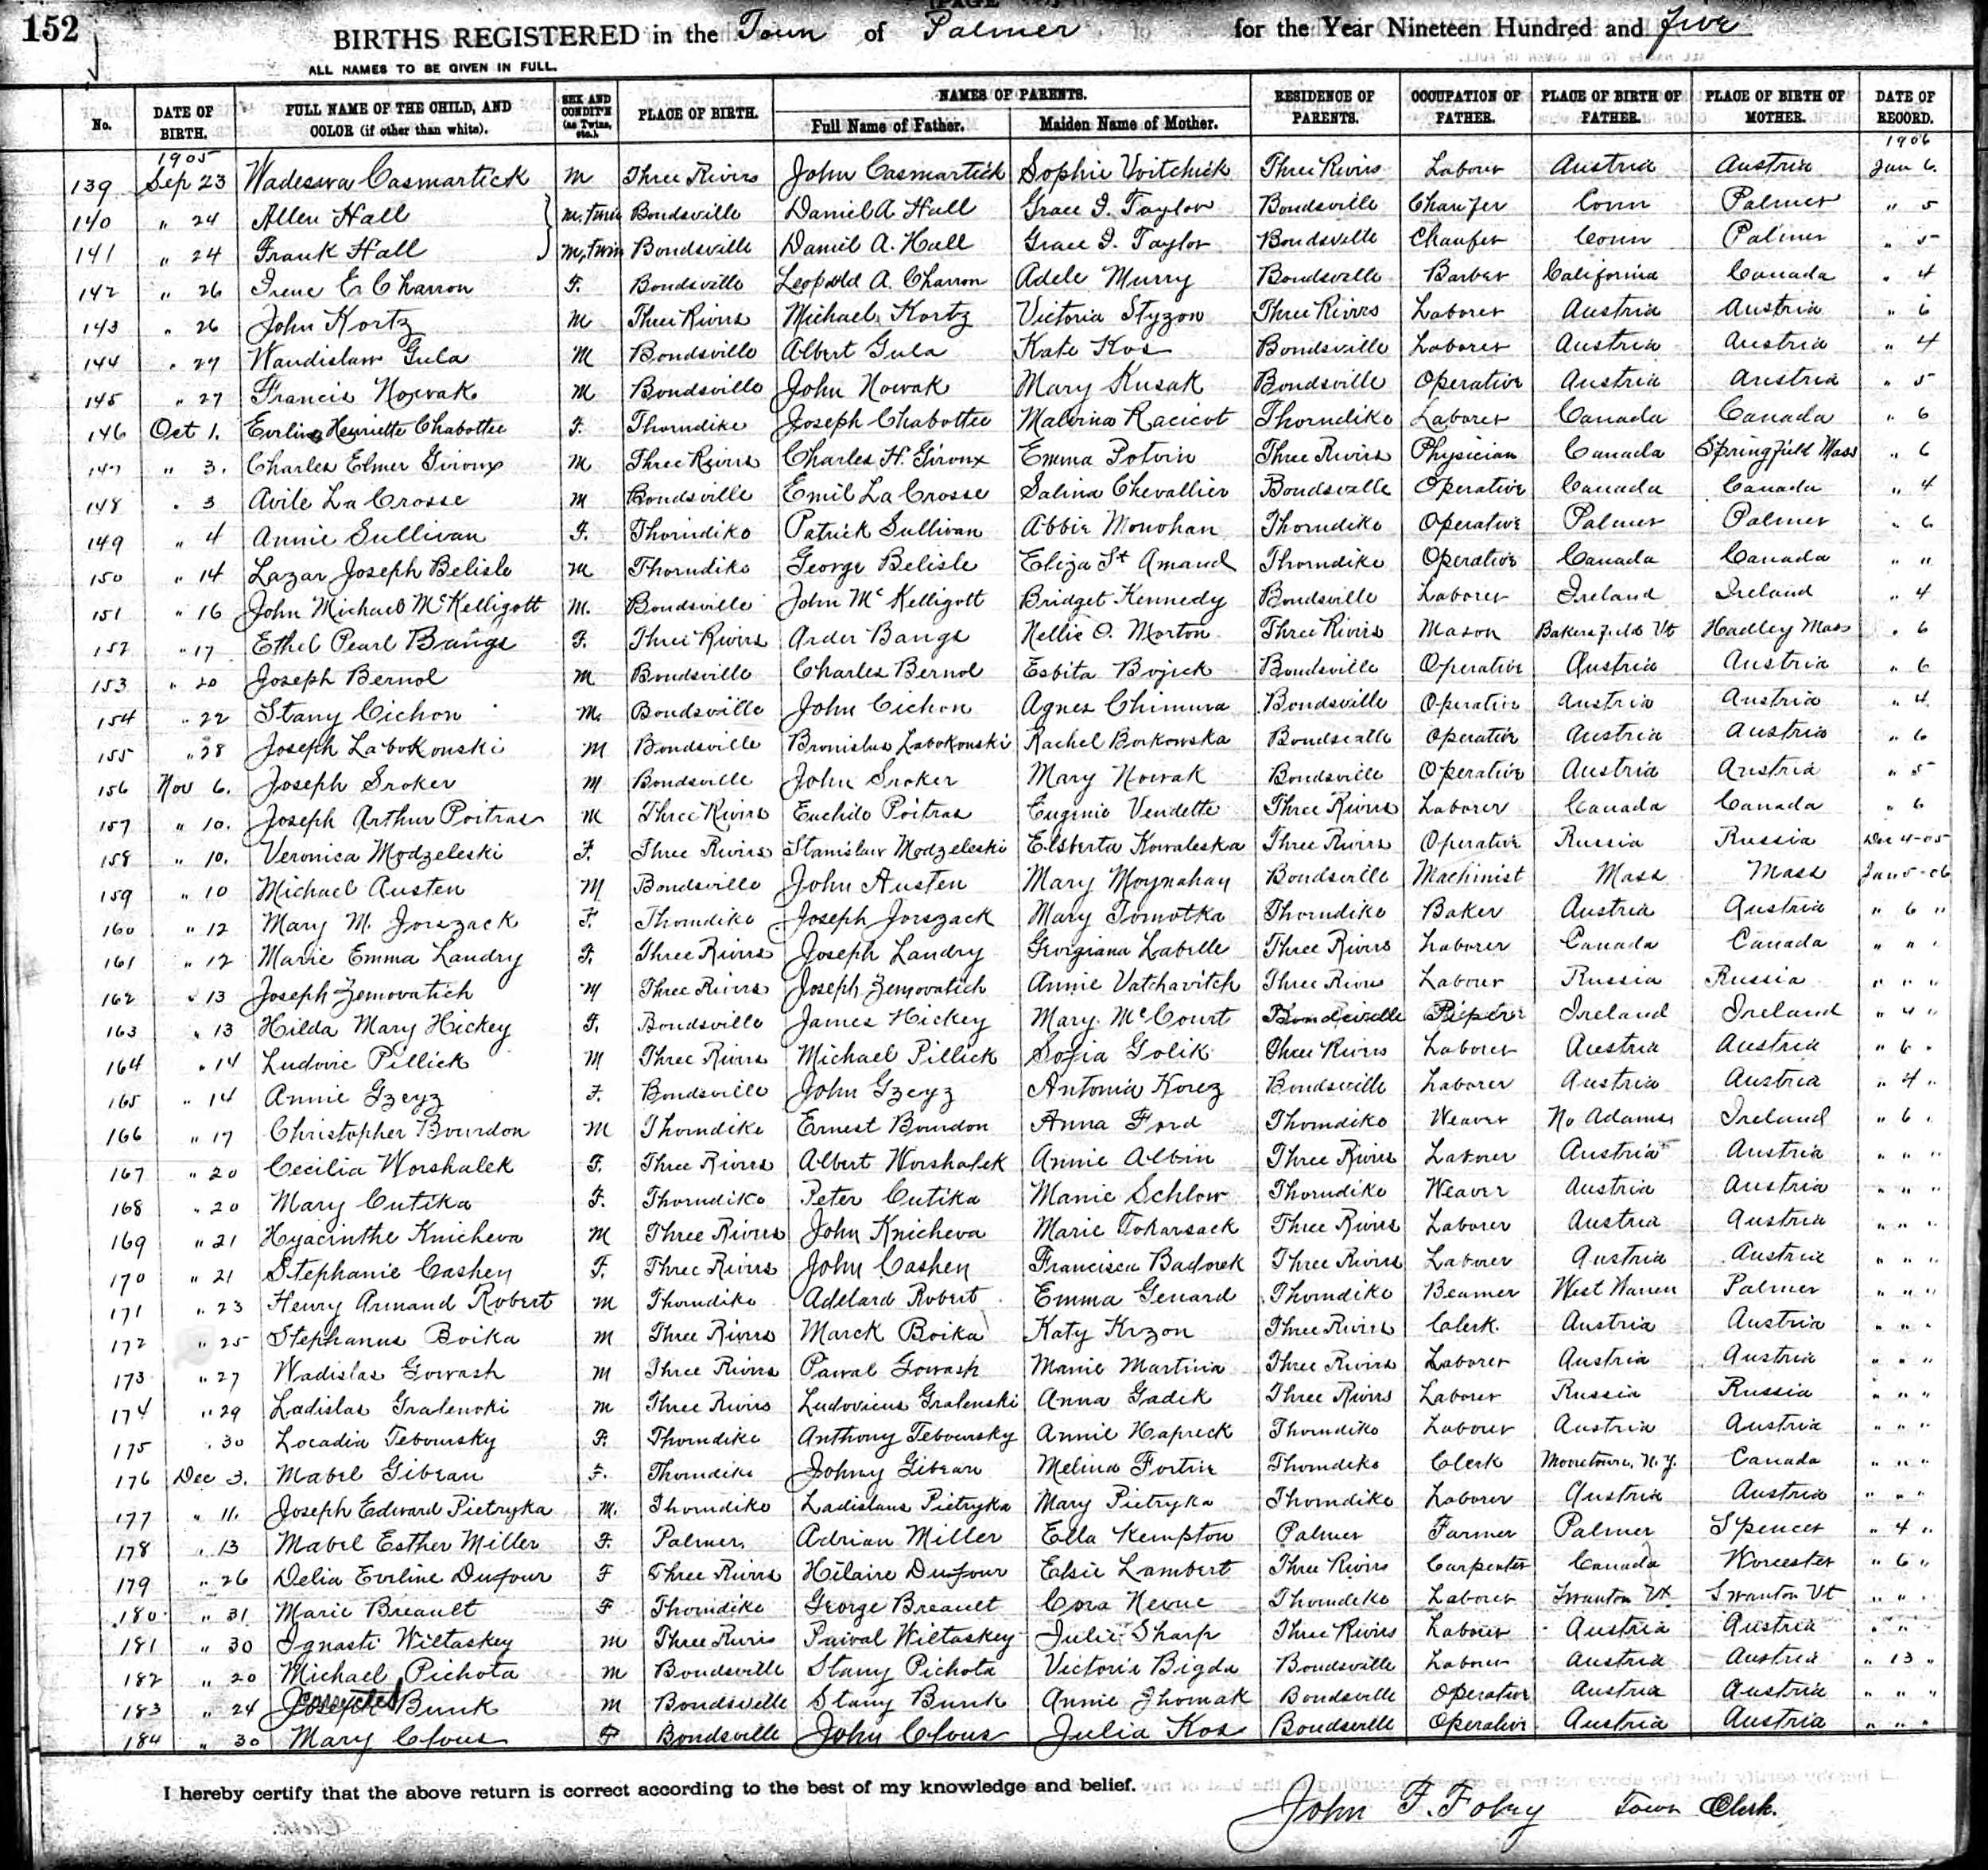 152
BIRTHS REGISTERED in the Town of Palmer for the Year Nineteen Hundred and five
ALL NAMES TO BE GIVEN IN FULL.
No. DATE OF BIRTH. FULL NAME OF THE CHILD, AND COLOR (if other than white). SEX AND CONDIT'N (as Twins, etc.). PLACE OF BIRTH. NAMES OF PARENTS. Full Name of Father. Maiden Name of Mother. RESIDENCE OF PARENTS. OCCUPATION OF FATHER. PLACE OF BIRTH OF FATHER. PLACE OF BIRTH OF MOTHER. DATE OF RECORD.
1905 1906
139 Sep 23 Wadeswa Casmartick M Three Rivers John Casmartick Sophie Voitchick Three Rivers Laborer Austria Austria Jan 6.
140 " 24 Allen Hall m, twin Bondsville Daniel A Hall Grace I. Taylor Bondsville Chaufer Conn Palmer " 5
141 " 24 Frank Hall m, twin Bondsville Daniel A. Hall Grace I. Taylor Bondsville Chaufer Conn Palmer " 5
142 " 26 Irene E Charron F. Bondsville Leopold A. Charron Adele Murry Bondsville Barber California Canada " 4
143 " 26 John Kortz M Three Rivers Michael Kortz Victoria Styzon Three Rivers Laborer Austria Austria " 6
144 " 27 Waudislaw Gula M Bondsville Albert Gula Kate Kos Bondsville Laborer Austria Austria " 4
145 " 27 Francis Nowak M Bondsville John Nowak Mary Kusak Bondsville Operative Austria Austria " 5
146 Oct 1. Evelina Henriette Chabottee F. Thorndike Joseph Chabottee Malvina Racicot Thorndike Laborer Canada Canada " 6
147 " 3. Charles Elmer Giroux M Three Rivers Charles H. Giroux Emma Potvin Three Rivers Physician Canada Springfield Mass " 6
148 " 3 Avile La Crosse M Bondsville Emil La Crosse Salina Chevallier Bondsville Operative Canada Canada " 4
149 " 4 Annie Sullivan F. Thorndike Patrick Sullivan Abbie Monohan Thorndike Operative Palmer Palmer " 6
150 " 14 Lazar Joseph Belisle M Thorndike George Belisle Eliza St Amand Thorndike Operative Canada Canada " "
151 " 16 John Michael McKelligott M. Bondsville John McKelligott Bridget Kennedy Bondsville Laborer Ireland Ireland " 4
152 " 17 Ethel Pearl Bangs F. Three Rivers Arder Bangs Nellie O. Morton Three Rivers Mason Bakersfield Vt Hadley Mass " 6
153 " 20 Joseph Bernol M Bondsville Charles Bernol Esbita Bojick Bondsville Operative Austria Austria " 6
154 " 22 Stany Cichon M. Bondsville John Cichon Agnes Chimura Bondsville Operative Austria Austria " 4
155 " 28 Joseph Labokonski M Bondsville Bronislus Labokonski Rachel Borkowska Bondsville Operative Austria Austria " 6
156 Nov 6. Joseph Sroker M Bondsville John Sroker Mary Nowak Bondsville Operative Austria Austria " 5
157 " 10. Joseph Arthur Poitras M Three Rivers Euclide Poitras Eugenie Vendette Three Rivers Laborer Canada Canada " 6
158 " 10. Veronica Modzeleski F. Three Rivers Stanislaw Modzeleski Elsberta Kowaleska Three Rivers Operative Russia Russia Dec 4-05
159 " 10 Michael Austen M Bondsville John Austen Mary Moynahan Bondsville Machinist Mass Mass Jan 5-06
160 " 12 Mary M. Jorszack F. Thorndike Joseph Jorszack Mary Tomotka Thorndike Baker Austria Austria " 6 "
161 " 12 Marie Emma Landry F. Three Rivers Joseph Landry Georgiana Labelle Three Rivers Laborer Canada Canada " " "
162 " 13 Joseph Zemovatich M Three Rivers Joseph Zemovatich Annie Vatchavitch Three Rivers Laborer Russia Russia " " "
163 " 13 Hilda Mary Hickey F. Bondsville James Hickey Mary McCourt Bondsville Ireland Ireland " 4 "
164 " 14 Ludovic Pillick M Three Rivers Michael Pillick Sofia Golik Three Rivers Laborer Austria Austria " 6 "
165 " 14 Annie Gzeyz F. Bondsville John Gzeyz Antonia Korez Bondsville Laborer Austria Austria " 4 "
166 " 17 Christopher Bourdon M Thorndike Ernest Bourdon Anna Ford Thorndike Weaver No Adams Ireland " 6 "
167 " 20 Cecilia Worshalek F. Three Rivers Albert Worshalek Annie Albin Three Rivers Laborer Austria Austria " " "
168 " 20 Mary Cutika F. Thorndike Peter Cutika Manie Schlow Thorndike Weaver Austria Austria " " "
169 " 21 Hyacinthe Knicheva M Three Rivers John Knicheva Marie Toharsack Three Rivers Laborer Austria Austria " " "
170 " 21 Stephanie Cashen F. Three Rivers John Cashen Francisca Badorek Three Rivers Laborer Austria Austria " " "
171 " 23 Henry Armand Robert M Thorndike Adelard Robert Emma Genard Thorndike Beamer West Warren Palmer " " "
172 " 25 Stephanus Boika M Three Rivers Marck Boika Katy Krzon Three Rivers Clerk. Austria Austria " " "
173 " 27 Wadislas Gowash M Three Rivers Pawal Gowash Manie Martinia Three Rivers Laborer Austria Austria " " "
174 " 29 Ladislas Gralenski M Three Rivers Ludovicus Gralenski Anna Gadik Three Rivers Laborer Russia Russia " " "
175 " 30 Locadia Teboursky F. Thorndike Anthony Teboursky Annie Hapreck Thorndike Laborer Austria Austria " " "
176 Dec 3. Mabel Gibeau F. Thorndike Johny Gibeau Melina Fortin Thorndike Clerk N.Y. Canada " " "
177 " 11. Joseph Edward Pietryka M. Thorndike Ladislaus Pietryka Mary Pietryka Thorndike Laborer Austria Austria " " "
178 " 13 Mabel Esther Miller F. Palmer Adrian Miller Ella Kempton Palmer Farmer Palmer Spencer " 4 "
179 " 26 Delia Eveline Dufour F Three Rivers Hilaire Dufour Elsie Lambert Three Rivers Carpenter Canada Worcester " 6 "
180 " 31 Marie Breault F Thorndike George Breault Cora Nevue Thorndike Laborer Swanton Vt Swanton Vt " " "
181 " 30 Ignasti Wiltaskey M Three Rivers Paival Wiltaskey Julie Sharp Three Rivers Laborer Austria Austria " "
182 " 20 Michael Pichota M Bondsville Stany Pichota Victoria Bigda Bondsville Laborer Austria Austria " 13 "
183 " 24 Bunk M Bondsville Stany Bunk Annie Jhomak Bondsville Operative Austria Austria " " "
184 " 30 Mary Clous F Bondsville John Clous Julia Kos Bondsville Operative Austria Austria " " "
I hereby certify that the above return is correct according to the best of my knowledge and belief.
John F. Foley Town Clerk.